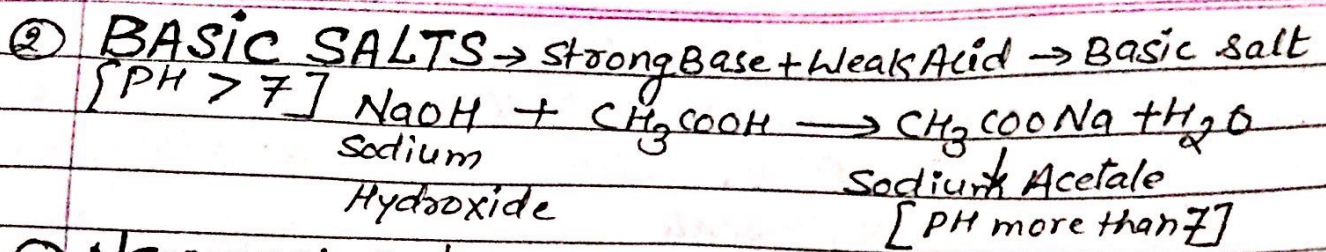 ② BASIC SALTS → Strong Base + Weak Acid → Basic Salt
[PH > 7] NaOH + CH₃COOH → CH₃COONa + H₂O
Sodium Hydroxide
Sodium Acetate
[PH more than 7]